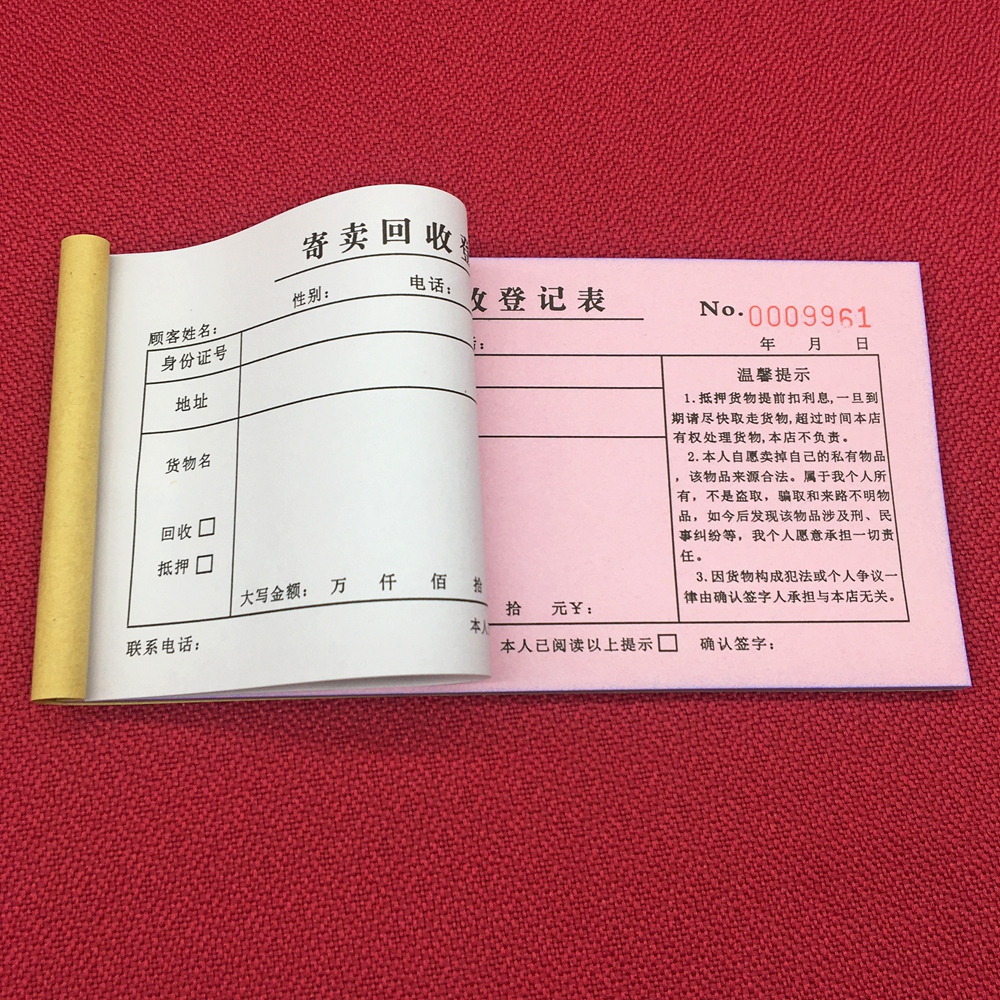 寄卖回收登
性别：
电话：
顾客姓名：
身份证号
地址
货物名
回收□
抵押□
大写金额： 万 仟 佰 拾
联系电话：
本人
收登记表
No.0009961
年 月 日
温馨提示
1.抵押货物提前扣利息,一旦到
期请尽快取走货物,超过时间本店
有权处理货物,本店不负责。
2.本人自愿卖掉自己的私有物品
，该物品来源合法。属于我个人所
有，不是盗取，骗取和来路不明物
品，如今后发现该物品涉及刑、民
事纠纷等，我个人愿意承担一切责
任。
3.因货物构成犯法或个人争议一
律由确认签字人承担与本店无关。
拾 元¥：
本人已阅读以上提示□ 确认签字：